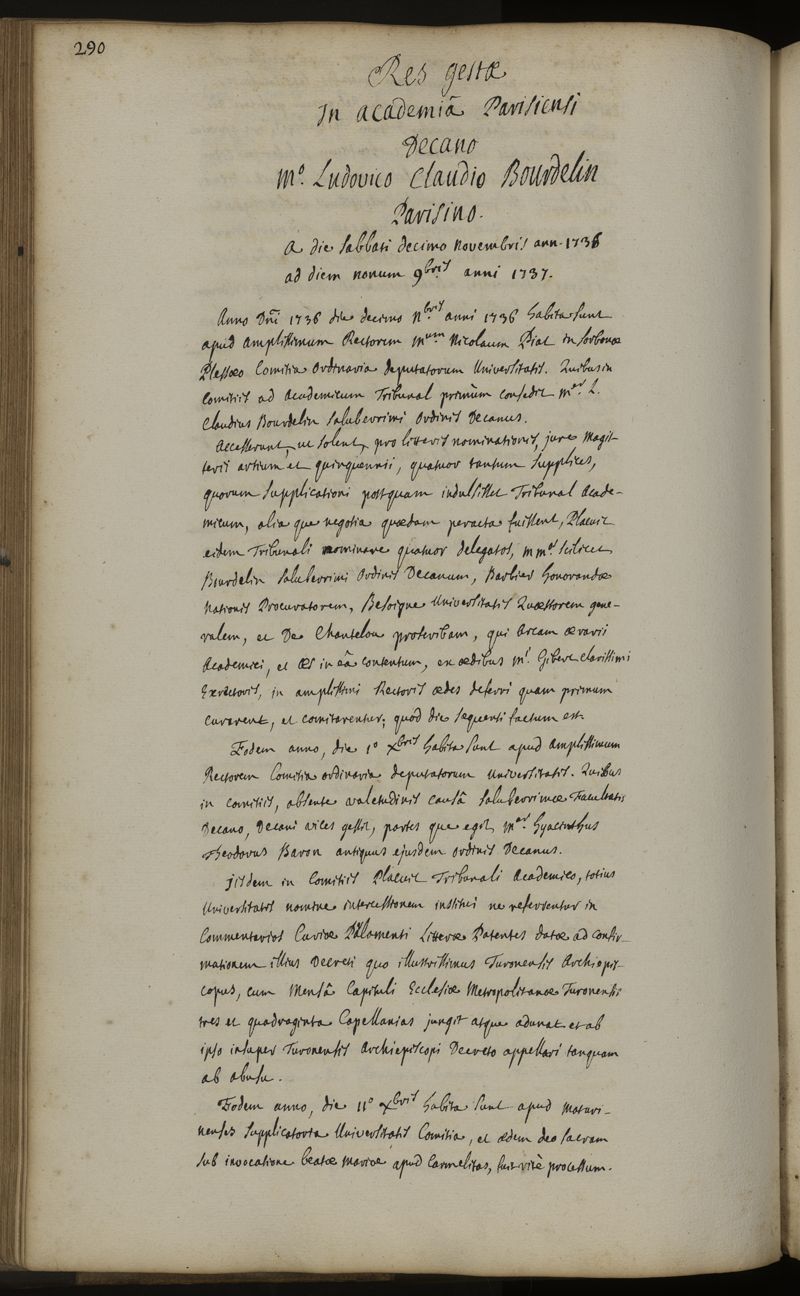 290
Res gestæ
In academiâ Parisiensi
Decano
M.º Ludovico Claudio Bourdelin
Parisino.
A die sabbati decimo novembris ann. 1736
ad diem nonum 9bris anni 1737.
Anno Dni 1736 die decimo Nbris anni 1736 habita sunt
apud amplissimum Rectorem Mum Nicolaum Piat in sorbonæ
Plessæo Comitia ordinaria deputatorum Universitatis. Quibus in
Comitiis ad Academicum Tribunal primùm consedit Mer L.
Claudius Bourdelin saluberrimi ordinis Decanus.
Accesserunt, ut solent, pro litteris nominationis, jure Magis-
terii artium et quinquennii, quatuor tantum supplices,
quorum supplicationi postquam indulsisset Tribunal Acade-
micum, alia que negotia quædam peracta fuissent, Placuit
eidem Tribunali nominare quatuor delegatos, mmos scilicet
Bourdelin saluberrimi ordinis Decanum, Barbier honorandæ
Nationis Procuratorem, Besoigne Universitatis Quæstorem gene-
ralem, et De Chantelou proscribam, qui Arcam ærarii
Academici, et æs in eâ contentum, ex ædibus Mi Gibert clarissimi
Exrectoris, in amplissimi Rectoris ædes deferri quam primum
curarent, et comitarentur; quod die sequenti factum est.
Eodem anno, die 1º Xbris habita sunt apud amplissimum
Rectorem Comitia ordinaria deputatorum Universitatis. Quibus
in comitiis, absente valetudinis causâ saluberrimæ Facultatis
Decano, Decani vices gessit, partes que egit Mer Hyacinthus
Theodorus Baron antiquus ejusdem ordinis Decanus.
Jisdem in Comitiis Placuit Tribunali Academico, totius
Universitatis nomine intercessionem institui ne referrentur in
Commentarios Curiæ Parlamenti Litteræ Patentes datæ ad confir-
mationem illius Decreti quo illustrissimus Turonensis Archiepis-
copus, cum Mensâ Capituli Ecclesiæ Metropolitanæ Turonensis
tres et quadraginta Capellanias jungit atque adunat et ab
ipso insuper Turonensis Archiepiscopi Decreto appellari tanquam
ab abusu.
Eodem anno, die 11º Xbris habita sunt apud Maturi-
nenses supplicatoria Universitatis Comitia, et ædem deo sacram
sub invocatione beatæ Mariæ apud Carmelitas, fuit ritè processum.